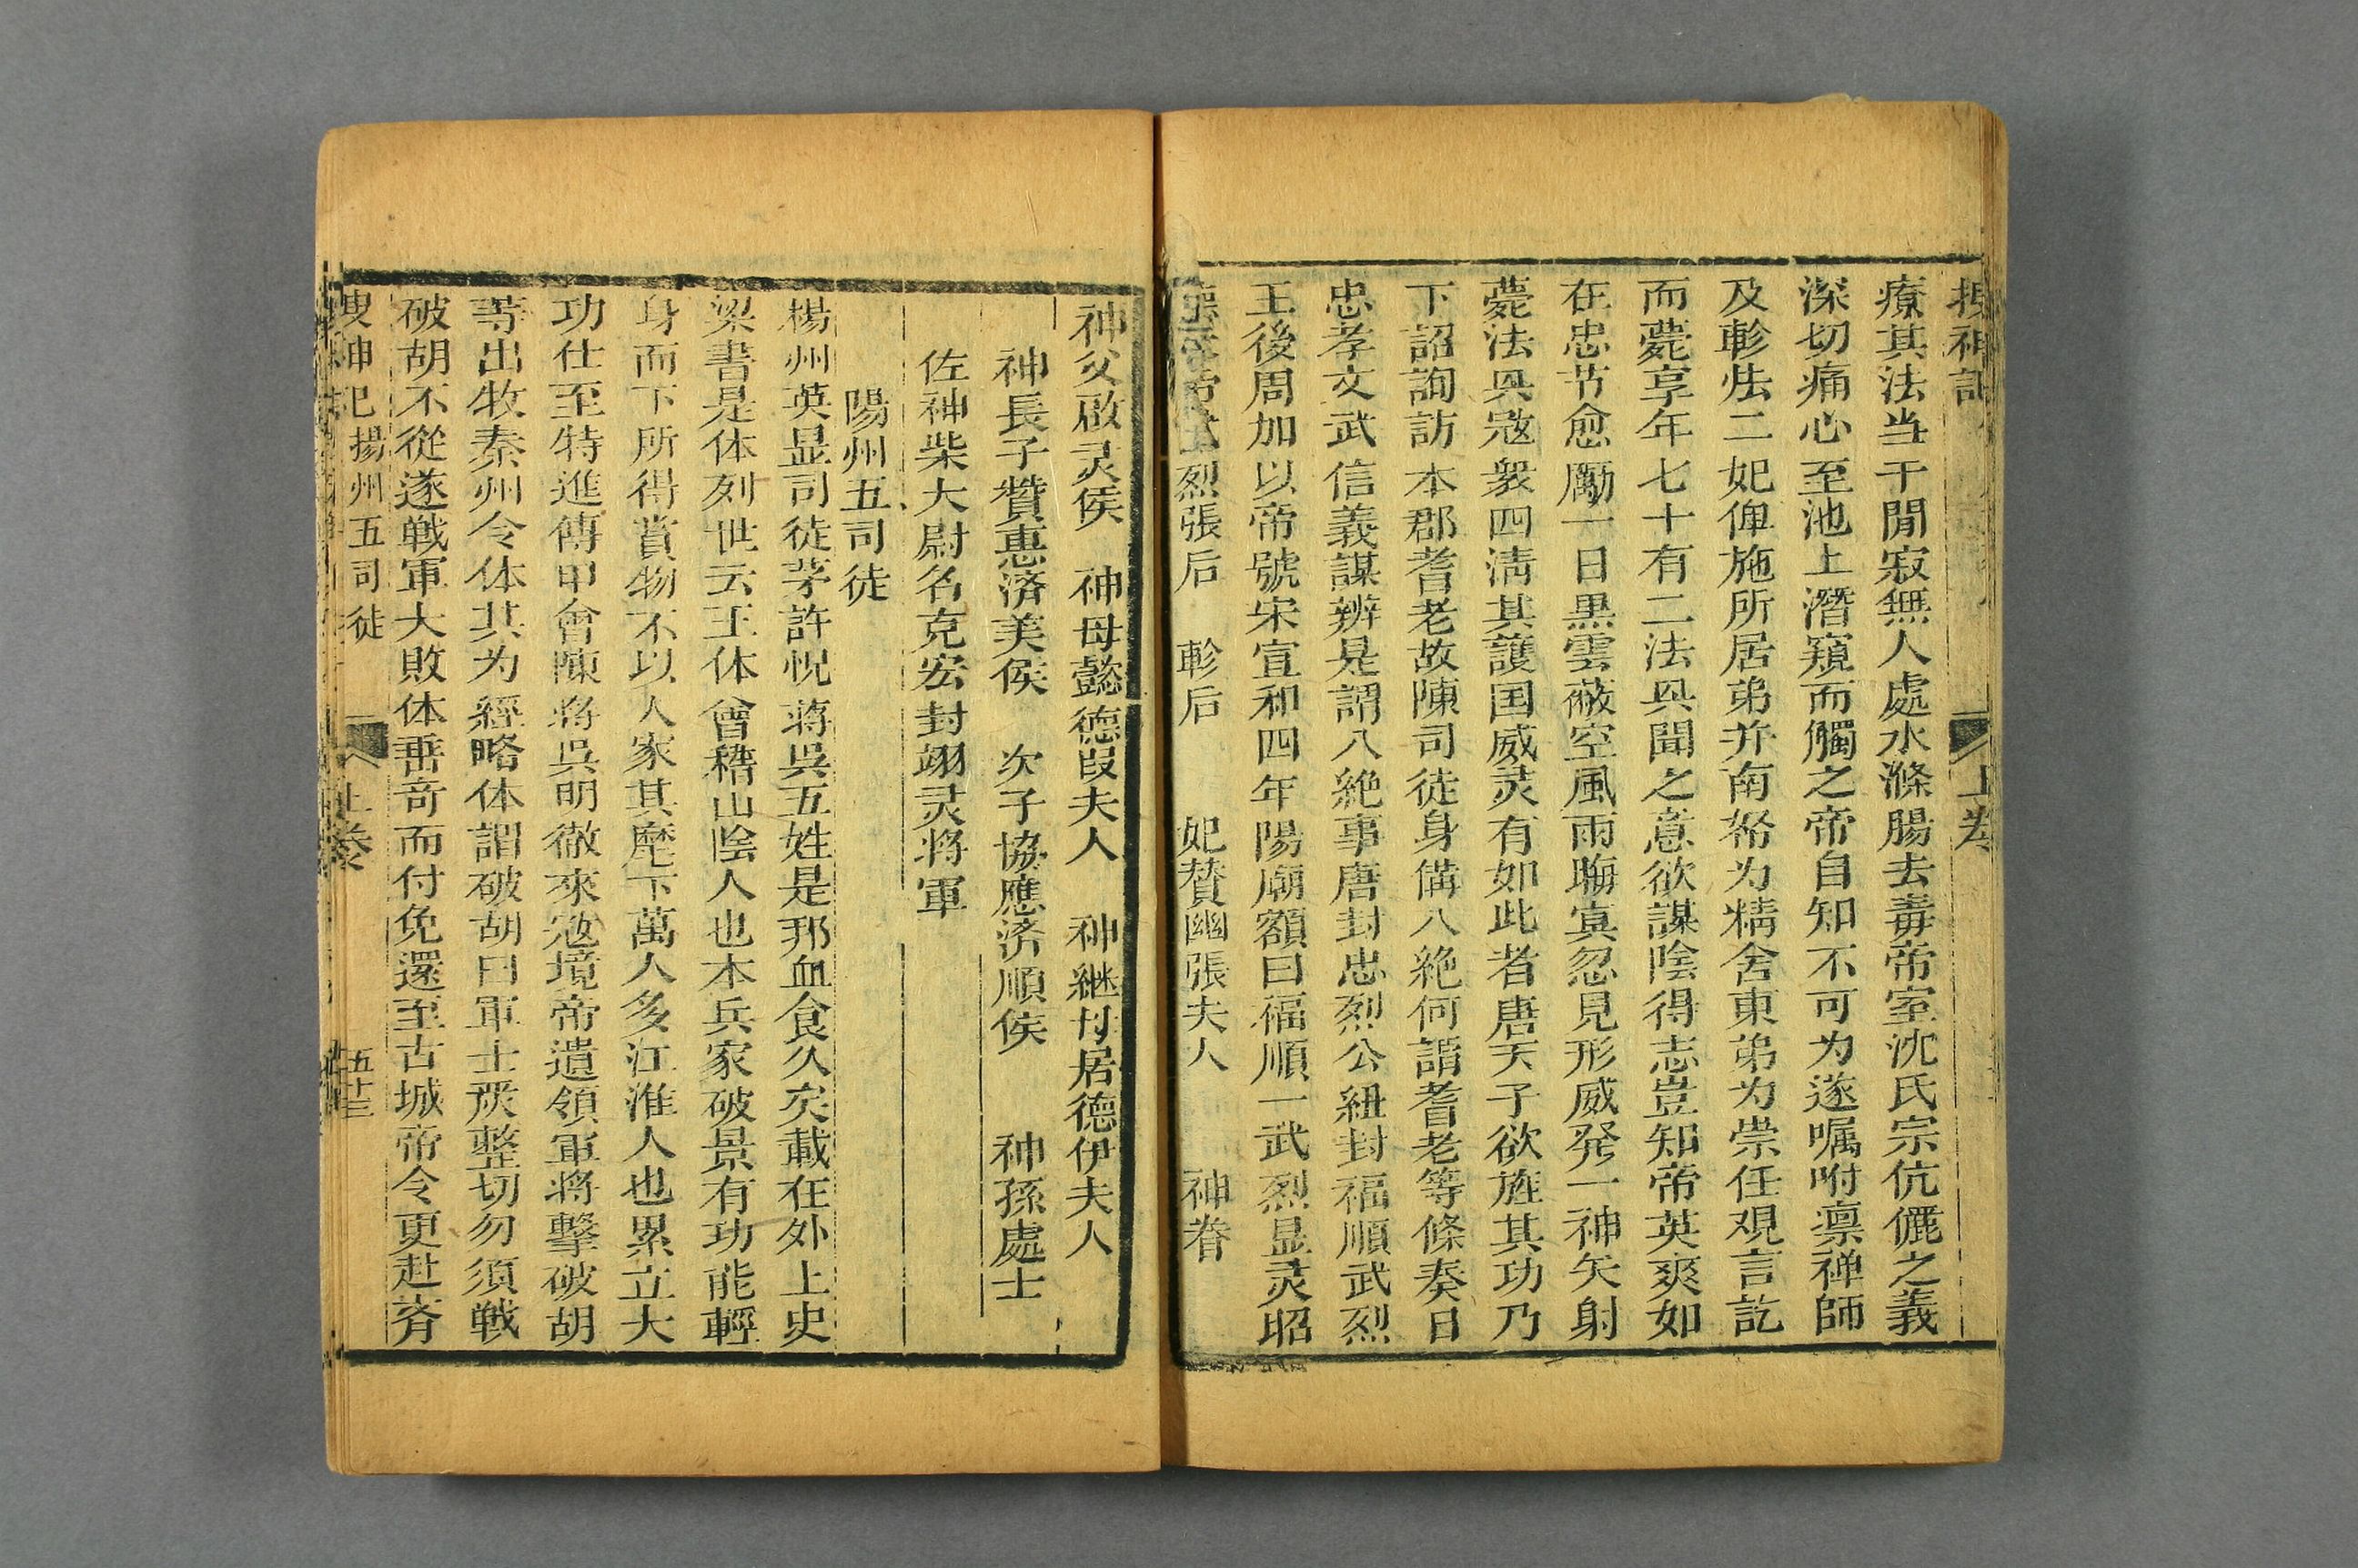 搜神記
上卷
療其法当于閒寂無人處水滌腸去毒帝室沈氏宗伉儷之義
深切痛心至池上潛窺而觸之帝自知不可为遂嘱咐禀禅師
及軫怯二妃俾施所居弟并南帑为精舍東弟为崇任观言訖
而薨享年七十有二法與聞之意欲謀陰得志豈知帝英爽如
在忠节愈勵一日黒雲蔽空風雨晦冥忽見形威発一神矢射
薨法具冦衆四淸其護国威灵有如此者唐天子欲旌其功乃
下詔詢訪本郡耆老故陳司徒身備八絶何謂耆老等條奏曰
忠孝文武信義謀辨是謂八絶事唐封忠烈公紐封福順武烈
王後周加以帝號宋宣和四年陽廟額曰福順一武烈显灵昭
帝武烈張后　軫后　妃賛幽張夫人　神眷
神父啟灵侯　神母懿德叚夫人　神継母居德伊夫人
神長子贊惠済美侯　次子協應济順侯　神孫處士
佐神柴大尉名克宏封翊灵將軍
陽州五司徒
楊州英显司徒茅許悅蔣吳五姓是邪血食久矣載在外上史
梁書是体列世云王休會稽山陰人也本兵家破景有功能輕
身而下所得賞物不以人家其麾下萬人多江淮人也累立大
功仕至特進傳甲會陳將吳明徹來冦境帝遺領軍將擊破胡
等出牧秦州令体其为經略体謂破胡曰軍士厭整切勿須戦
破胡不從遂戦軍大敗休垂竒而付免還至古城帝令更赴
搜神記　揚州五司徒
上卷
五十三